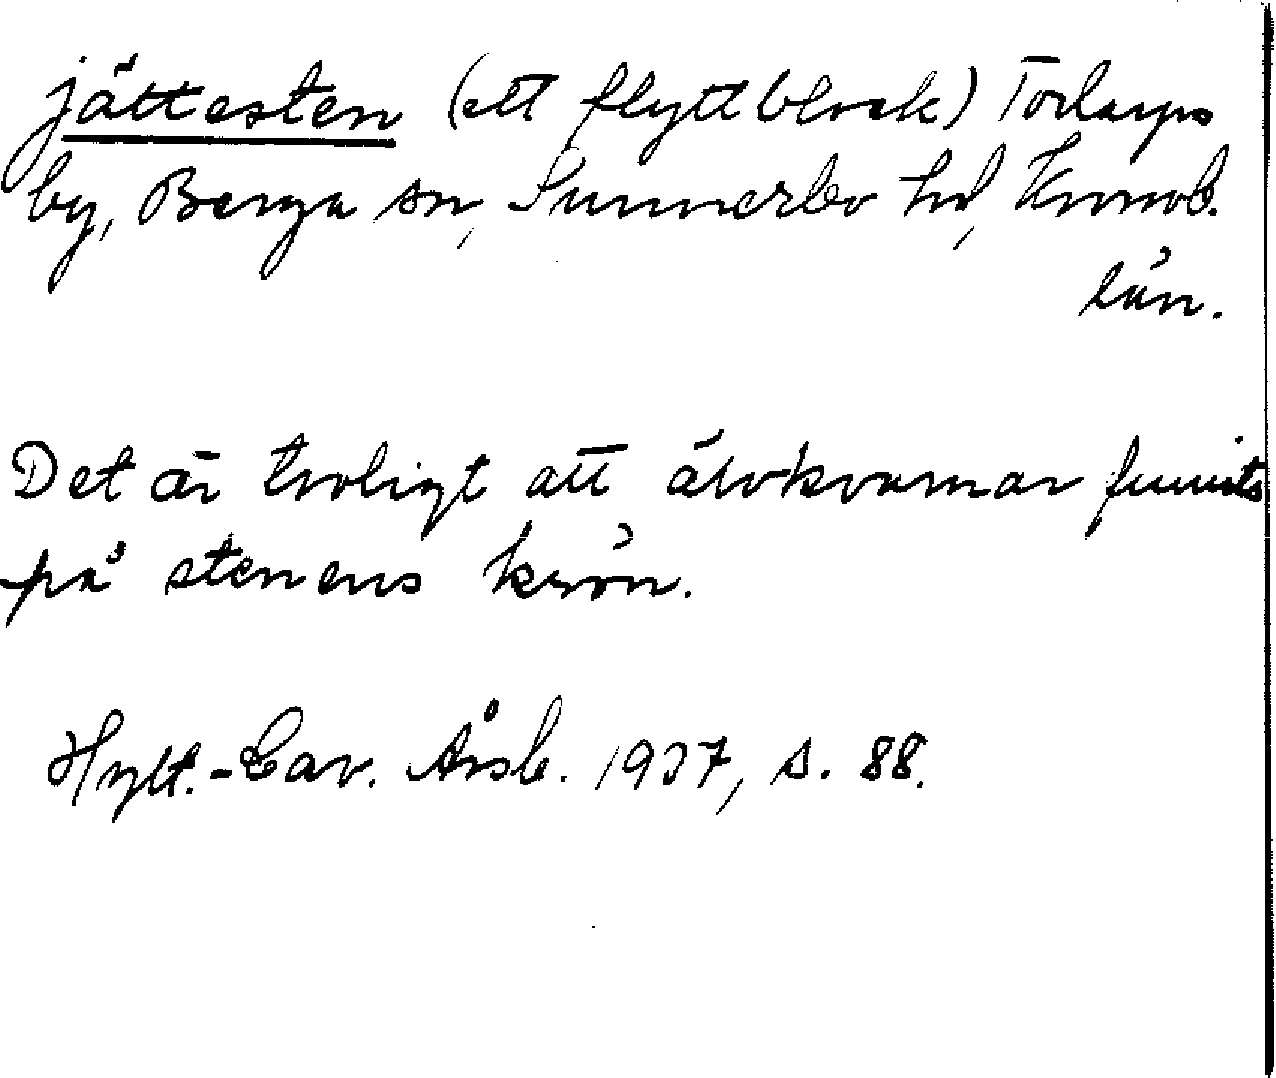 jättesten (ett flyttblock) Torlarps
by, Berga sn, Sunnerbo hd, Kronob.
län.
Det är troligt att älvkvarnar funnits
på stenens krön.
Hylt.-Cav. Årsb. 1937, s. 88.